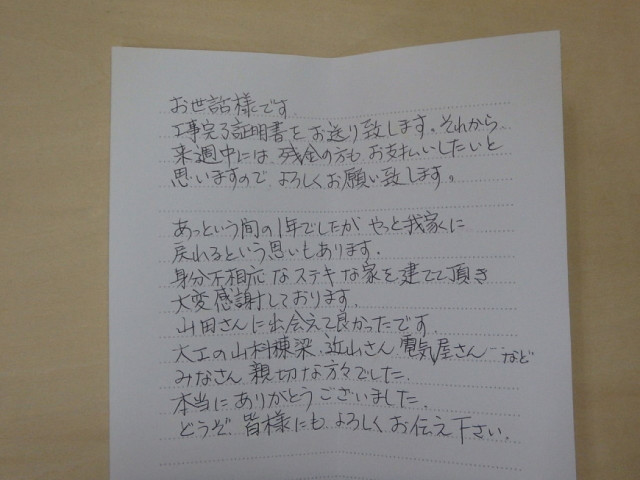 お世話様です.
工事完了証明書をお送り致します。それから
来週中には、残金の方も お支払いしたいと
思いますので、よろしくお願い致します。
あっという間の1年でしたが やっと我家に
戻れるという思いもあります.
身分不相応なステキな家を建てて頂き
大変感謝しております.
山田さんに出会えて良かったです.
大工の山科棟梁、近山さん、電気屋さん…など
みなさん 親切な方々でした.
本当に ありがとうございました.
どうぞ、皆様にも よろしく お伝え下さい.